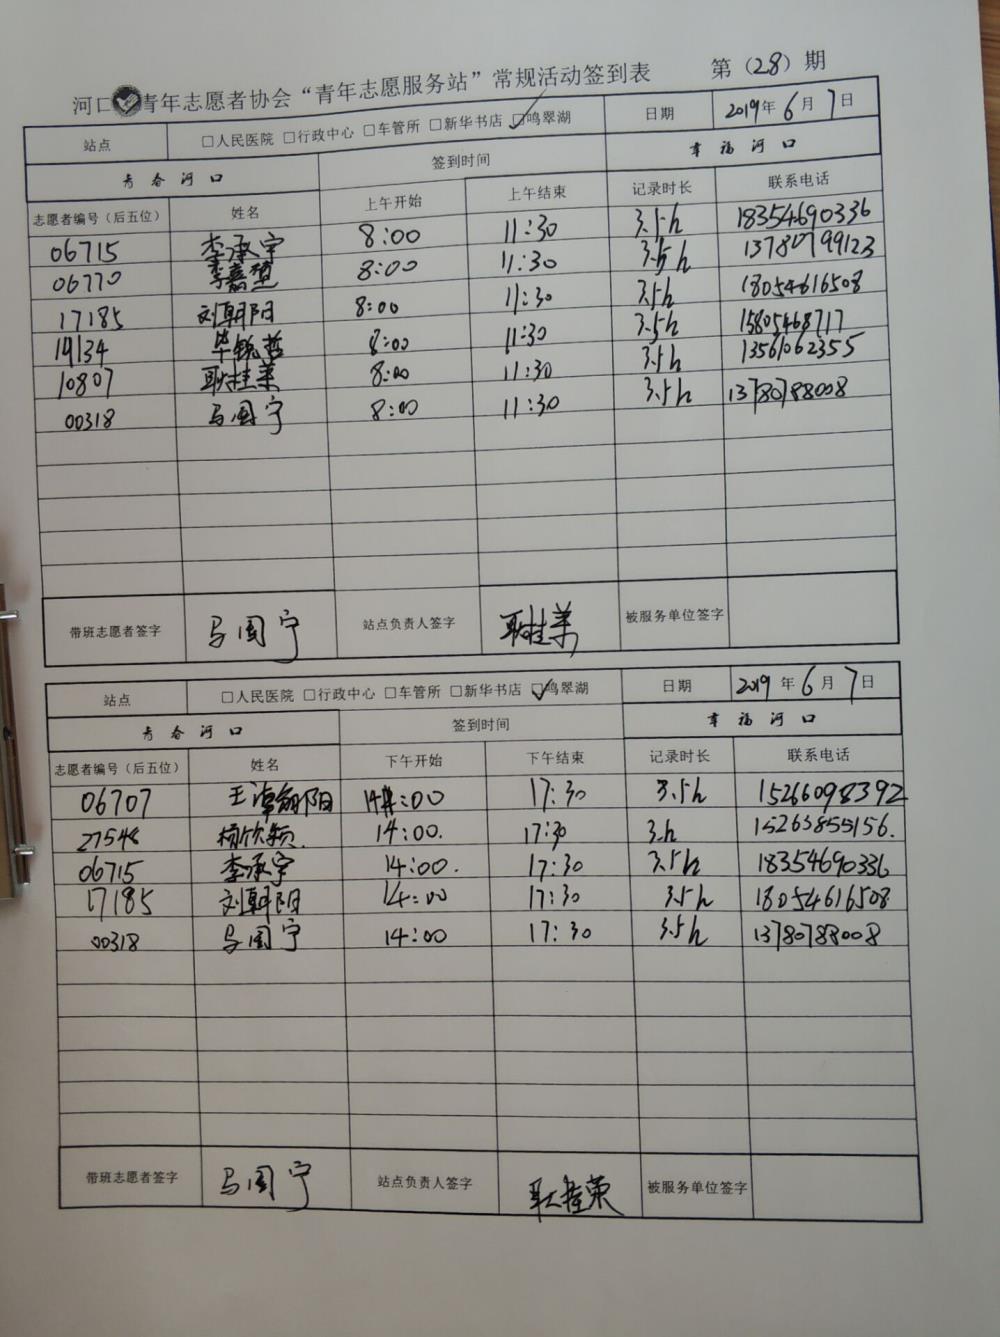 河口青年志愿者协会“青年志愿服务站”常规活动签到表 第（28）期
站点 □人民医院 □行政中心 □车管所 □新华书店 ☑鸣翠湖 日期 2019年6月7日
青春河口 签到时间 幸福河口
志愿者编号（后五位） 姓名 上午开始 上午结束 记录时长 联系电话
06715 李承宇 8:00 11:30 3.5h 18354690336
06770 李嘉堃 8:00 11:30 3.5h 13780799123
17185 刘朝阳 8:00 11:30 3.5h 18054616508
14134 毕锐哲 8:00 11:30 3.5h 15805468717
10807 耿桂荣 8:00 11:30 3.5h 13561062355
00318 马国宁 8:00 11:30 3.5h 13780788008
带班志愿者签字 马国宁 站点负责人签字 耿桂荣 被服务单位签字
站点 □人民医院 □行政中心 □车管所 □新华书店 ☑鸣翠湖 日期 2019年6月7日
青春河口 签到时间 幸福河口
志愿者编号（后五位） 姓名 下午开始 下午结束 记录时长 联系电话
06707 14:00 17:30 3.5h 15266098392
27548 杨欣颖. 14:00. 17:30 3.h 15263855156.
06715 李承宇 14:00. 17:30 3.5h 18354690336
17185 刘朝阳 14:00 17:30 3.5h 18054616508
00318 马国宁 14:00 17:30 3.5h 13780788008
带班志愿者签字 马国宁 站点负责人签字 耿桂荣 被服务单位签字